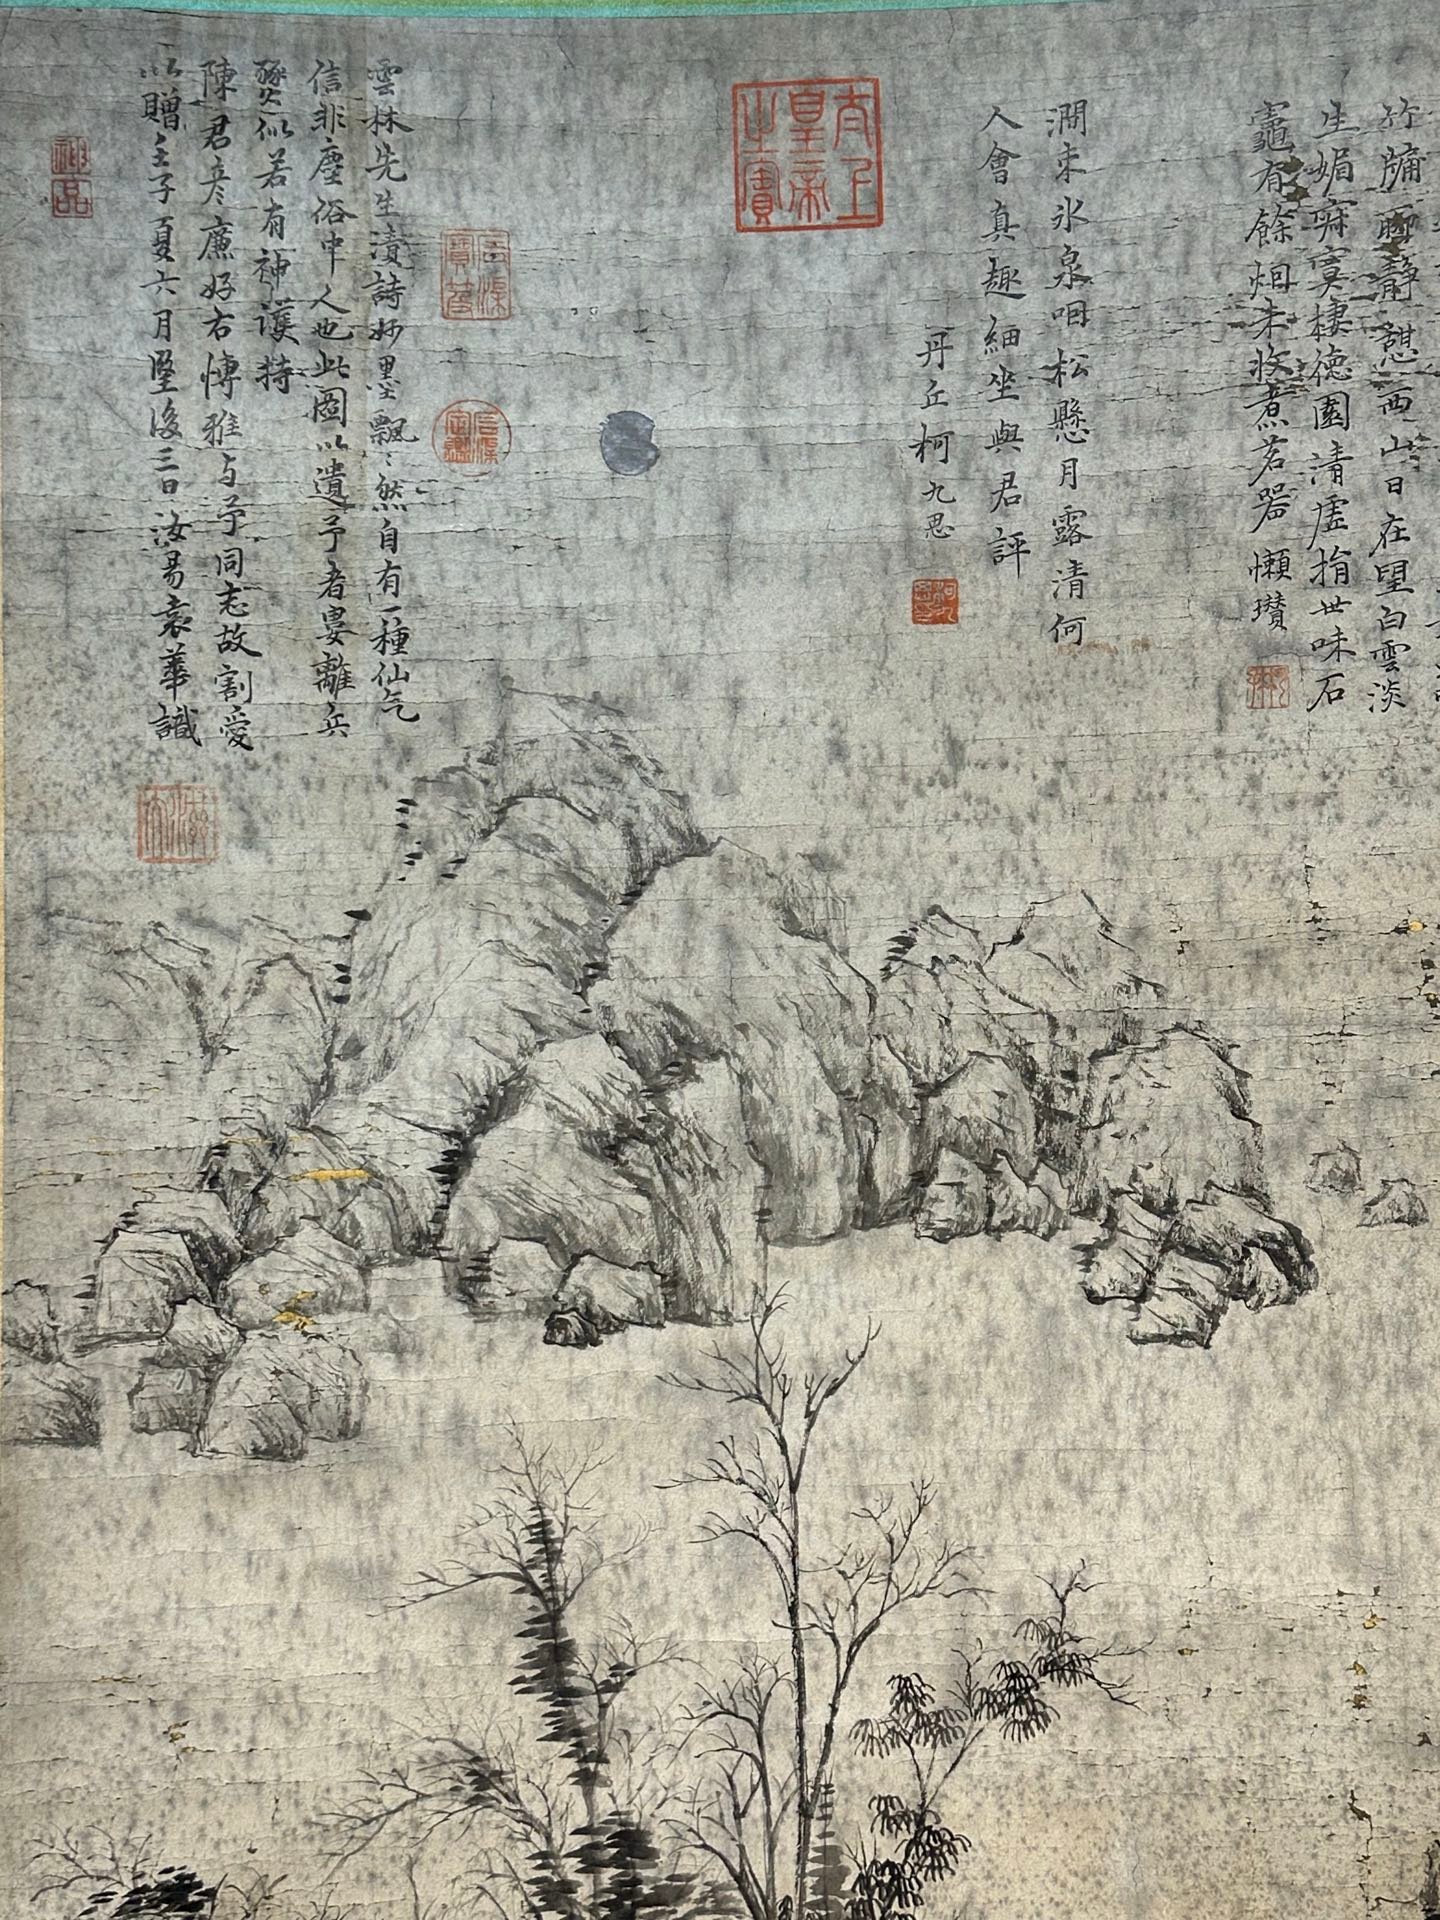 竹牖面靜憩西山日在望白雲淡
生媚寂寞棲德園清虛捐世味石
竈有餘烟未收煮茗器 懶瓚
澗束氷泉咽松懸月露清何
人會真趣細坐與君評
丹丘柯九思
太上
皇帝
之寶
雲林先生漬詩妙墨飄〻然自有一種仙气
信非塵俗中人也此圖以遺予者婁離兵
燹似若有神護持
陳君彦廉好古博雅与予同志故割愛
以贈壬子夏六月既望後三日汝易袁華識
神品
石渠
寶笈
石渠
定鑑